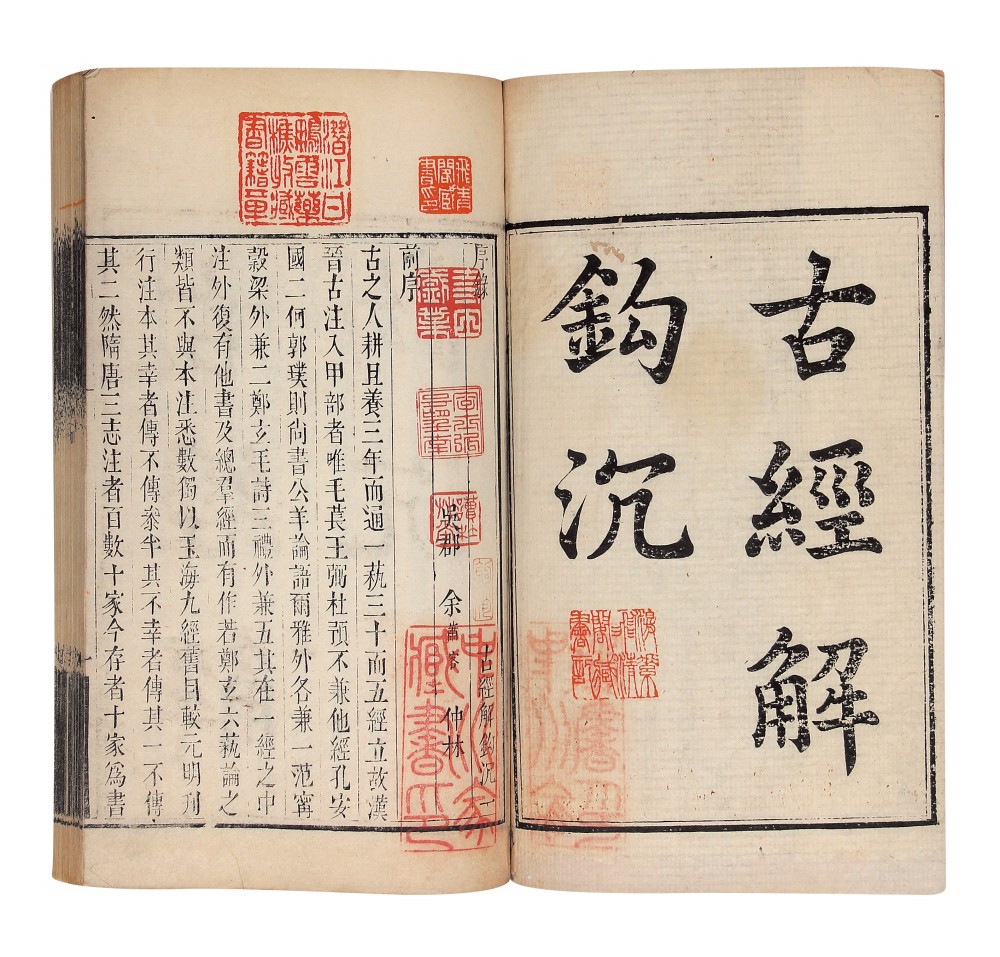 古經解
鈎沉
序錄
古經解鈎沉一
吳郡 余蕭客 仲林
前序
古之人耕且養三年而通一蓺三十而五經立故漢
晉古注入甲部者唯毛萇王弼杜預不兼他經孔安
國二何郭璞則尚書公羊論語爾雅外各兼一范甯
穀梁外兼二鄭玄毛詩三禮外兼五其在一經之中
注外復有他書及總羣經而有作若鄭玄六蓺論之
類皆不與本注悉數獨以玉海九經舊目較元明刊
行注本其幸者傳不傳叅半其不幸者傳其一不傳
其二然隋唐三志注者百數十家今存者十家爲書
潛江甘
鵬雲藥
樵收藏
書籍章
飛青
閣臧
書印
藏書